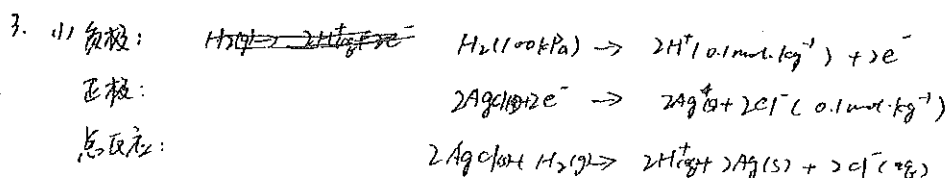 3. (1) 负极： H₂(100kPa) → 2H⁺(0.1mol·kg⁻¹) + 2e⁻
正极： 2AgCl(s)+2e⁻ → 2Ag(s)+ 2Cl⁻( 0.1mol·kg⁻¹)
总反应： 2AgCl(s)+ H₂(g) → 2H⁺(aq)+ 2Ag(s) + 2Cl⁻(aq)